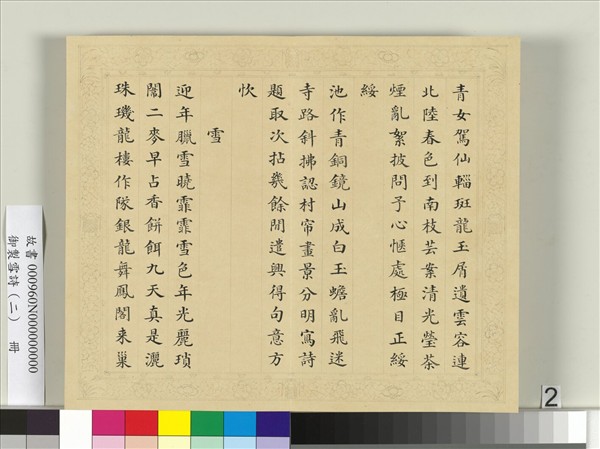 青女駕仙輜斑龍玉屑遺雲容連
北陸春色到南枝芸案清光瑩茶
煙亂絮披問予心愜處極目正綏
綏
池作青銅鏡山成白玉蟾亂飛迷
寺路斜拂認村帘畫景分明寫詩
題取次拈幾餘閒遣興得句意方
忺
雪
迎年臘雪曉霏霏雪色年光麗瑣
闈二麥早占香餅餌九天真是灑
珠璣龍樓作隊銀龍舞鳳閣来巢
故書 000960N000000000
御製雪詩(二) 冊
2